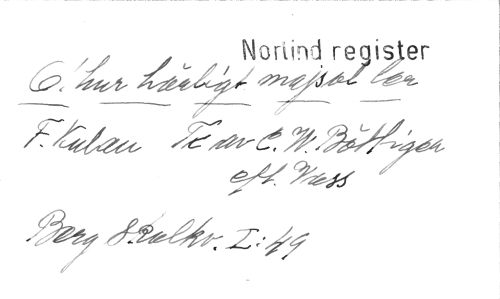 Norlind register
O! hur härligt majsol ler
F. Kuhlau Tr av C. W. Böttiger
eft. Wess
Berg Skolkv. I: 49